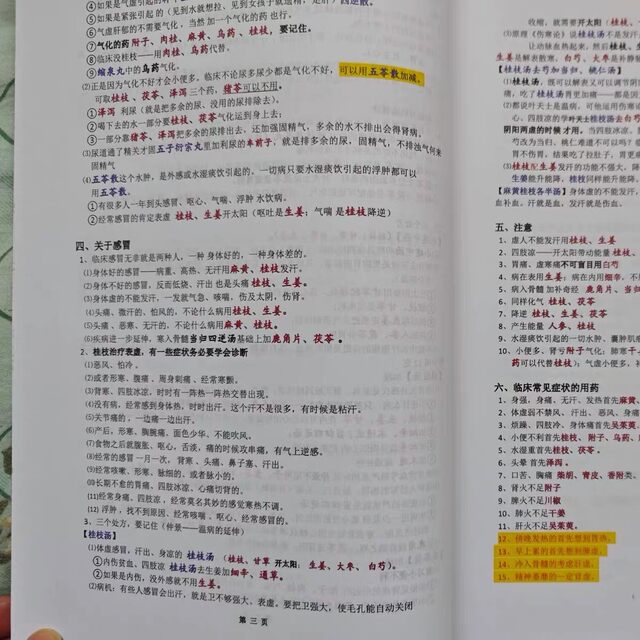 ④如果是气虚引起的
⑤如果是紧张引起的（见到水就想拉、见到女孩子就遗精，是肝）四逆散。
⑥气虚肝郁的不需要气化，当然加一个气化的药也行。
⑦气化的药附子、肉桂、麻黄、乌药、桂枝，要记住。
⑧临床没桂枝——用肉桂、乌药代替。
⑨缩泉丸中的乌药气化。
(2)正是因为气化不好才会小便多。临床不论尿多尿少都是气化不好，可以用五苓散加减。
可取桂枝、茯苓、泽泻三个药，猪苓可以不用。
①泽泻利尿（就是把多余的尿、没用的尿排除去）。
②喝下去的水一部分要桂枝、茯苓气化运到身上去；
③一部分靠猪苓、泽泻把多余的尿排出去，还加强固精气，多余的水不排出会得肾病。
(3)尿道通了精关才固五子衍宗丸里加利尿的车前子，就是排多余的尿、固精气，不排浊气何来
固精气
(4)五苓散这个水肿，是外感或水湿痰饮引起的，一切病只要水湿痰饮引起的浮肿都可以
用五苓散。
①有很多人一年到头感冒、心慌、气喘、浮肿 水饮病。
②经常感冒的肯定表虚 桂枝、生姜开太阳（呕吐是生姜；气喘 是桂枝降逆）
四、关于感冒
1、临床感冒无非就是两种人，一种 身体好的，一种身体差的。
(1)身体好的感冒——病重、高热、无汗用麻黄、桂枝发汗。
(2)身体不好的感冒，反而低烧、汗出 也是头痛桂枝、生姜。
(3)身体虚的不能发汗，一发就气急、咳喘，伤及太阴，伤肾。
(4)头痛、微汗的，怕风的，不论什么病用桂枝、生姜。
(5)头痛、恶寒、无汗的，不论什么病用麻黄、桂枝。
(6)疾病进一步延伸，寒入骨髓当归四逆汤基础上加鹿角片、茯苓。
2、桂枝治疗表虚，有一些症状务必要学会诊断
(1)恶风、怕冷。
(2)或者形寒、腹痛、周身刺痛、经常寒颤。
(3)背寒、四肢冰凉，时时有一阵热一阵热交替出现。
(4)没有病，经常感到身体热，时时出汗。这个汗不是很多，有时候是粘汗。
(5)关节痛的，一边痛一边出汗。
(6)产后，形寒、胸腕痛，面色少华、不能吹风。
(7)食物之后就腹胀、呕心，舌淡，痛的时候攻串痛，有气上逆感。
(8)经常的感冒 一月一次， 背寒、头痛、鼻子塞、汗出。
(9)经常咳嗽、形寒、脉细的、或者脉小的。
⑽长期不愈的胃痛，四肢冰凉、心痛切背的。
⑾经常身痛、四肢凉，经常莫名其妙的感觉寒热不调。
⑿浮肿，找不到原因、经常咳喘、呕心、经常感冒的。
3、三个处方，要记住（仲景——温病的延伸）
【桂枝汤】
(1)体虚感冒，汗出、身凉的 桂枝汤 （桂枝、甘草 开太阳； 生姜、大枣、 白芍）。
①内伤贫血、四肢凉 桂枝汤去生姜加细辛、通草。
②如果是内伤，没外感就不用生姜。
(2)病机：有些人感冒会出汗，就是卫不够强大、表虚。要把卫强大，使毛孔能自动关闭
第 三 页
收缩，就需要开太阳（桂枝、
(3)原理《伤寒论》说桂枝汤不是发汗
让动脉血热起来，然后桂枝、
生姜是解表散寒、白芍、大枣是补静脉
【桂枝汤去芍加当归、桃仁汤】
(1)桂枝汤，既可以解表又可以调节阴
痛，吃了桂枝汤胃更加痛——那是因
(2)都说叶天士是温病，可他运用伤寒
心、四肢凉的《叶天士》桂枝汤去白芍
阴阳两虚的时候 才用。当四肢凉、
芍改为当归、桃仁难道不可以吗？临
胃不伤胃。结果吃了拉肚子，胃更痛
(3)桂枝配生姜发汗的功能不强大，降
生姜能升能降，桂枝同样能升能降。
【麻黄桂枝各半汤】身体虚的不能发汗，
血补血，汗就是血，发汗就是伤血。
五、注意
1、虚人不能发汗用桂枝、生姜
2、四肢回——开太阳带动能量 桂枝、
3、胃痛、虚寒痛不可盲目用白芍
4、病在表用生姜；病在内用细辛。不
5、病入骨髓 加补奇经 鹿角片、当归
6、同样化气 桂枝、茯苓
7、降逆 桂枝、生姜、茯苓
8、产生能量 人参、桂枝
9、水湿痰饮引起的一切水肿、囊肿肌
10、小便多、肾亏附子气化；肺寒干
药可以代替桂枝）；气虚小便多，
六、临床常见症状的用药
1、身强，身痛、无汗、发热首先麻黄、
2、体虚弱不禁风、汗出、恶风、身痛
3、烦躁、四肢冷、身体痛首先吴茱萸、
4、小便不利首先桂枝、附子、乌药、
5、水湿重首先桂枝、茯苓。
6、头晕首先泽泻。
7、口苦、胸痛 柴胡、青皮、香附类、
8、肾火不足附子
9、脾火不足川椒
10、肺火不足干姜
11、肝火不足吴茱萸。
12、傍晚发热的首先想到胃热。
13、早上累的首先想到脾虚。
14、冷入骨髓的考虑肝虚。
15、精神萎靡的一定肾虚。